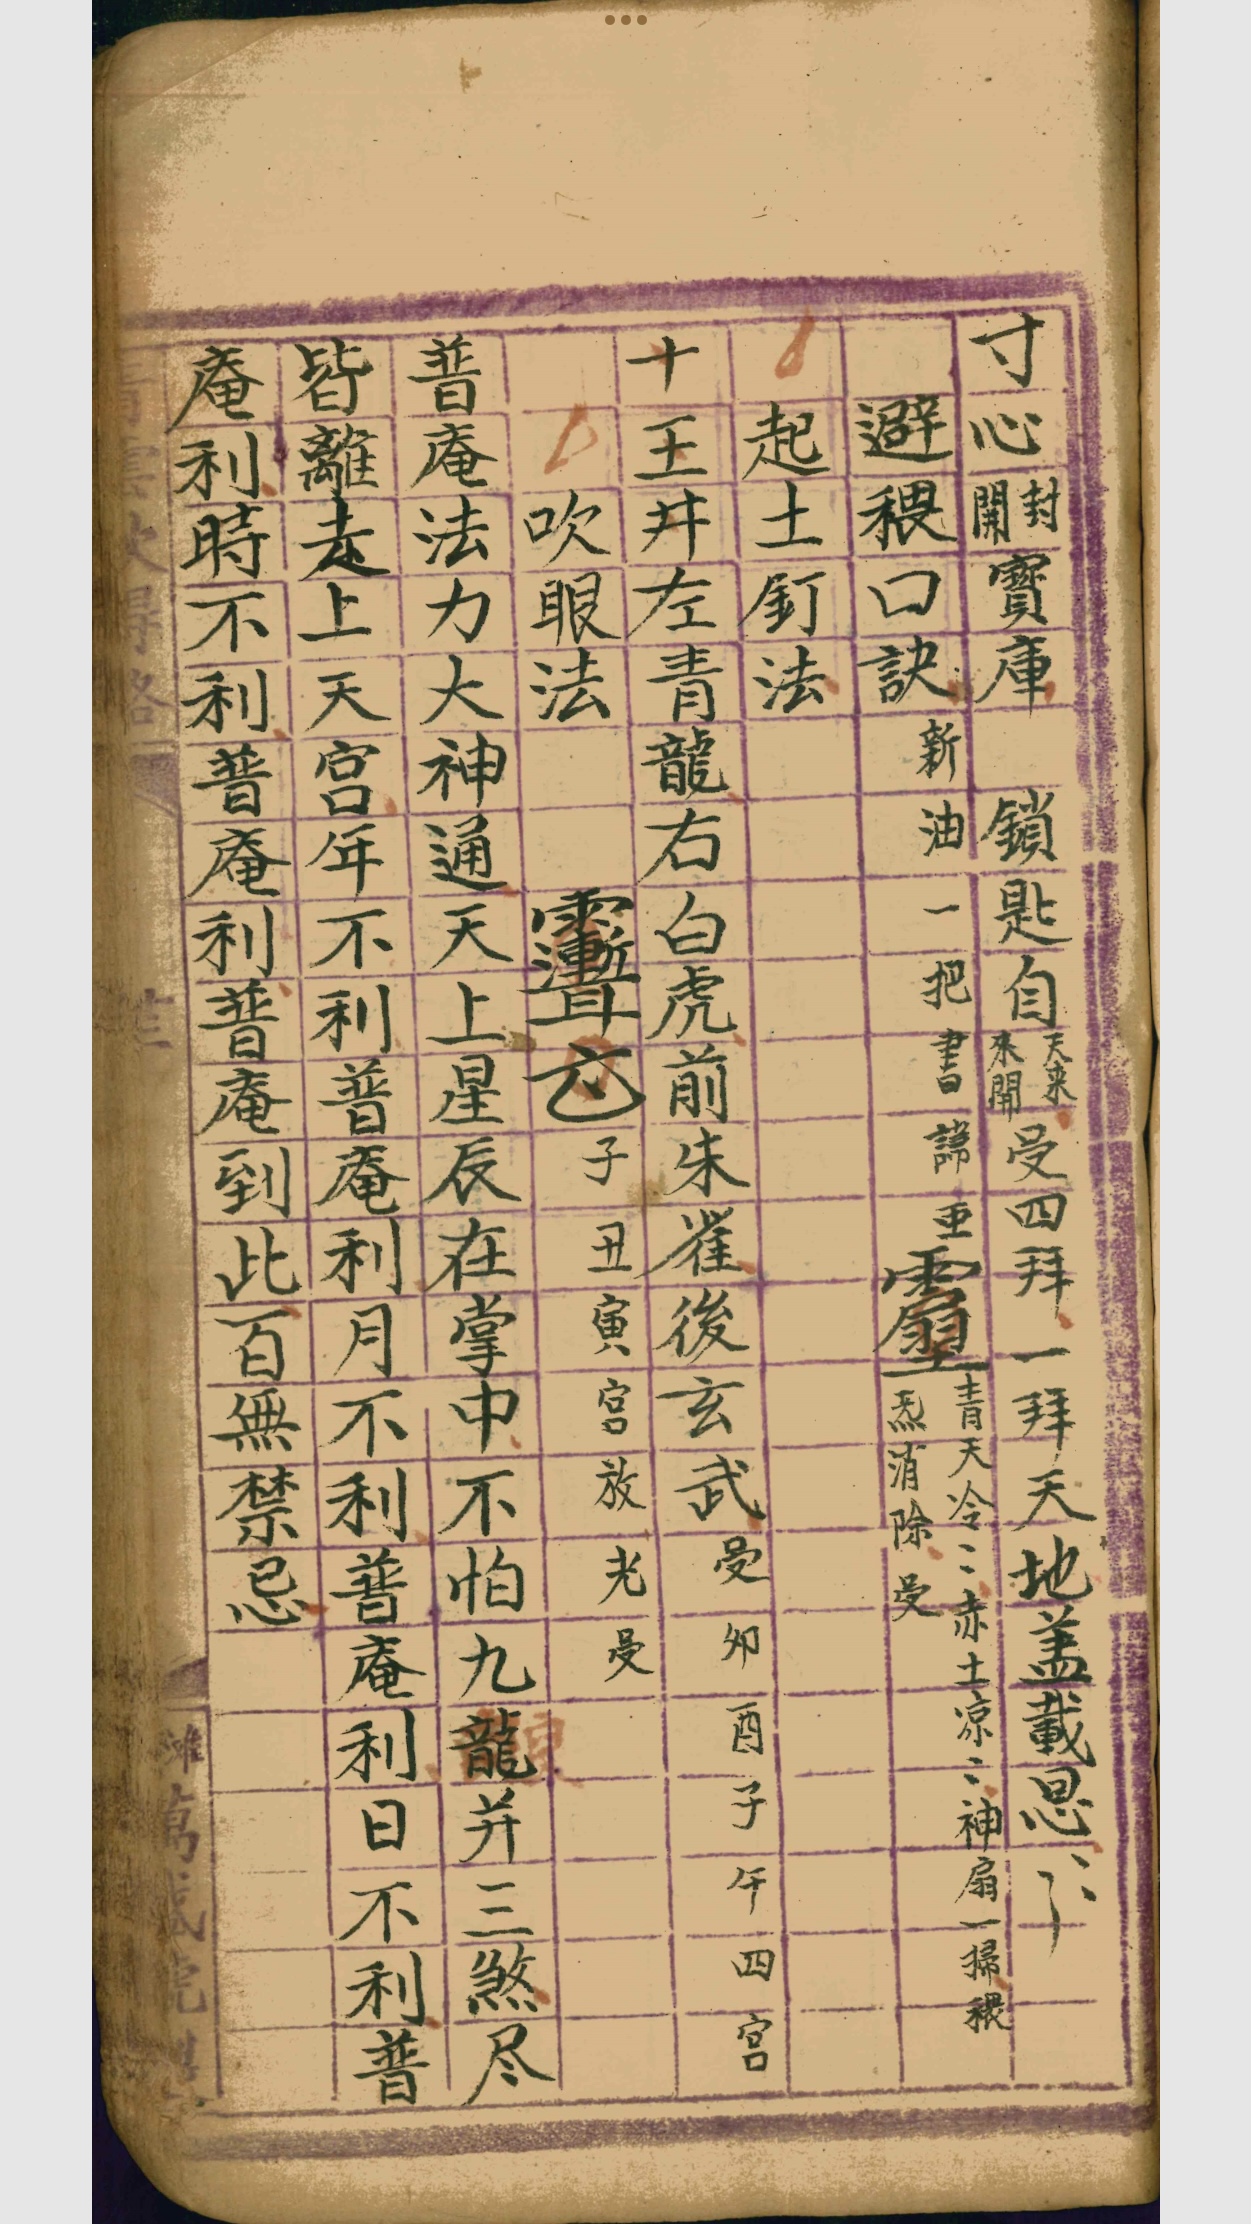 寸心封開寶庫　鎖匙自天來來開受四拜一拜天地盖載恩
避穢口訣新油一把書諱　青天冷〻赤土凉〻神扇一掃穢炁消除受
起土釘法
十王井左青龍右白虎前朱雀後玄武受夘酉子午四宮
吹眼法　子丑寅宮放光受
普庵法力大神通天上星辰在掌中不怕九龍并三煞尽
皆離去上天宮年不利普庵利月不利普庵利日不利普
庵利時不利普庵利普庵到此百無禁忌